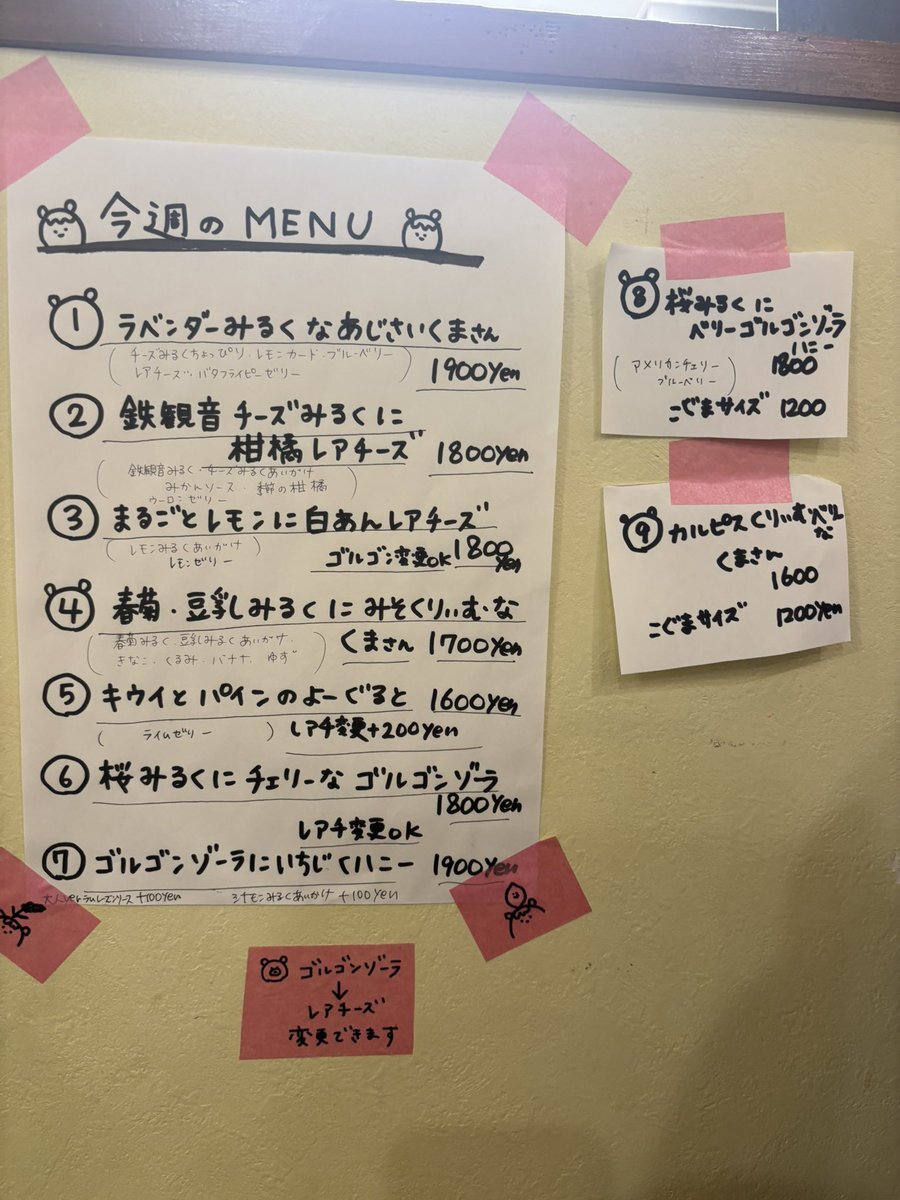 今週のMENU
① ラベンダーみるくなあじさいくまさん
(チーズみるくちょっぴり・レモンカード・ブルーベリー
レアチーズ・バタフライピーゼリー)
1900Yen
② 鉄観音チーズみるくに
柑橘レアチーズ 1800Yen
(鉄観音みるく・チーズみるくあいがけ
みかんソース・季節の柑橘
ウーロンゼリー)
③ まるごとレモンに白あんレアチーズ
(レモンみるくあいがけ
レモンゼリー)
ゴルゴン変更OK 1800Yen
④ 春菊・豆乳みるくにみそくりぃむな
(春菊みるく・豆乳みるくあいがけ
きなこ・くるみ・バナナ・ゆず)
くまさん 1700Yen
⑤ キウイとパインのよーぐると 1600Yen
(ライムゼリー) レアチ変更+200Yen
⑥ 桜みるくにチェリーなゴルゴンゾーラ
1800Yen
レアチ変更OK
⑦ ゴルゴンゾーラにいちじくハニー 1900Yen
大人verラムレーズンソース+100Yen シナモンみるくあいがけ +100Yen
ゴルゴンゾーラ
↓
レアチーズ
変更できます
⑧ 桜みるくに
ベリーゴルゴンゾーラ
ハニー
(アメリカンチェリー
ブルーベリー)
1800
こぐまサイズ 1200
⑨ カルピスくりぃむベリー
な
くまさん
1600
こぐまサイズ 1200Yen